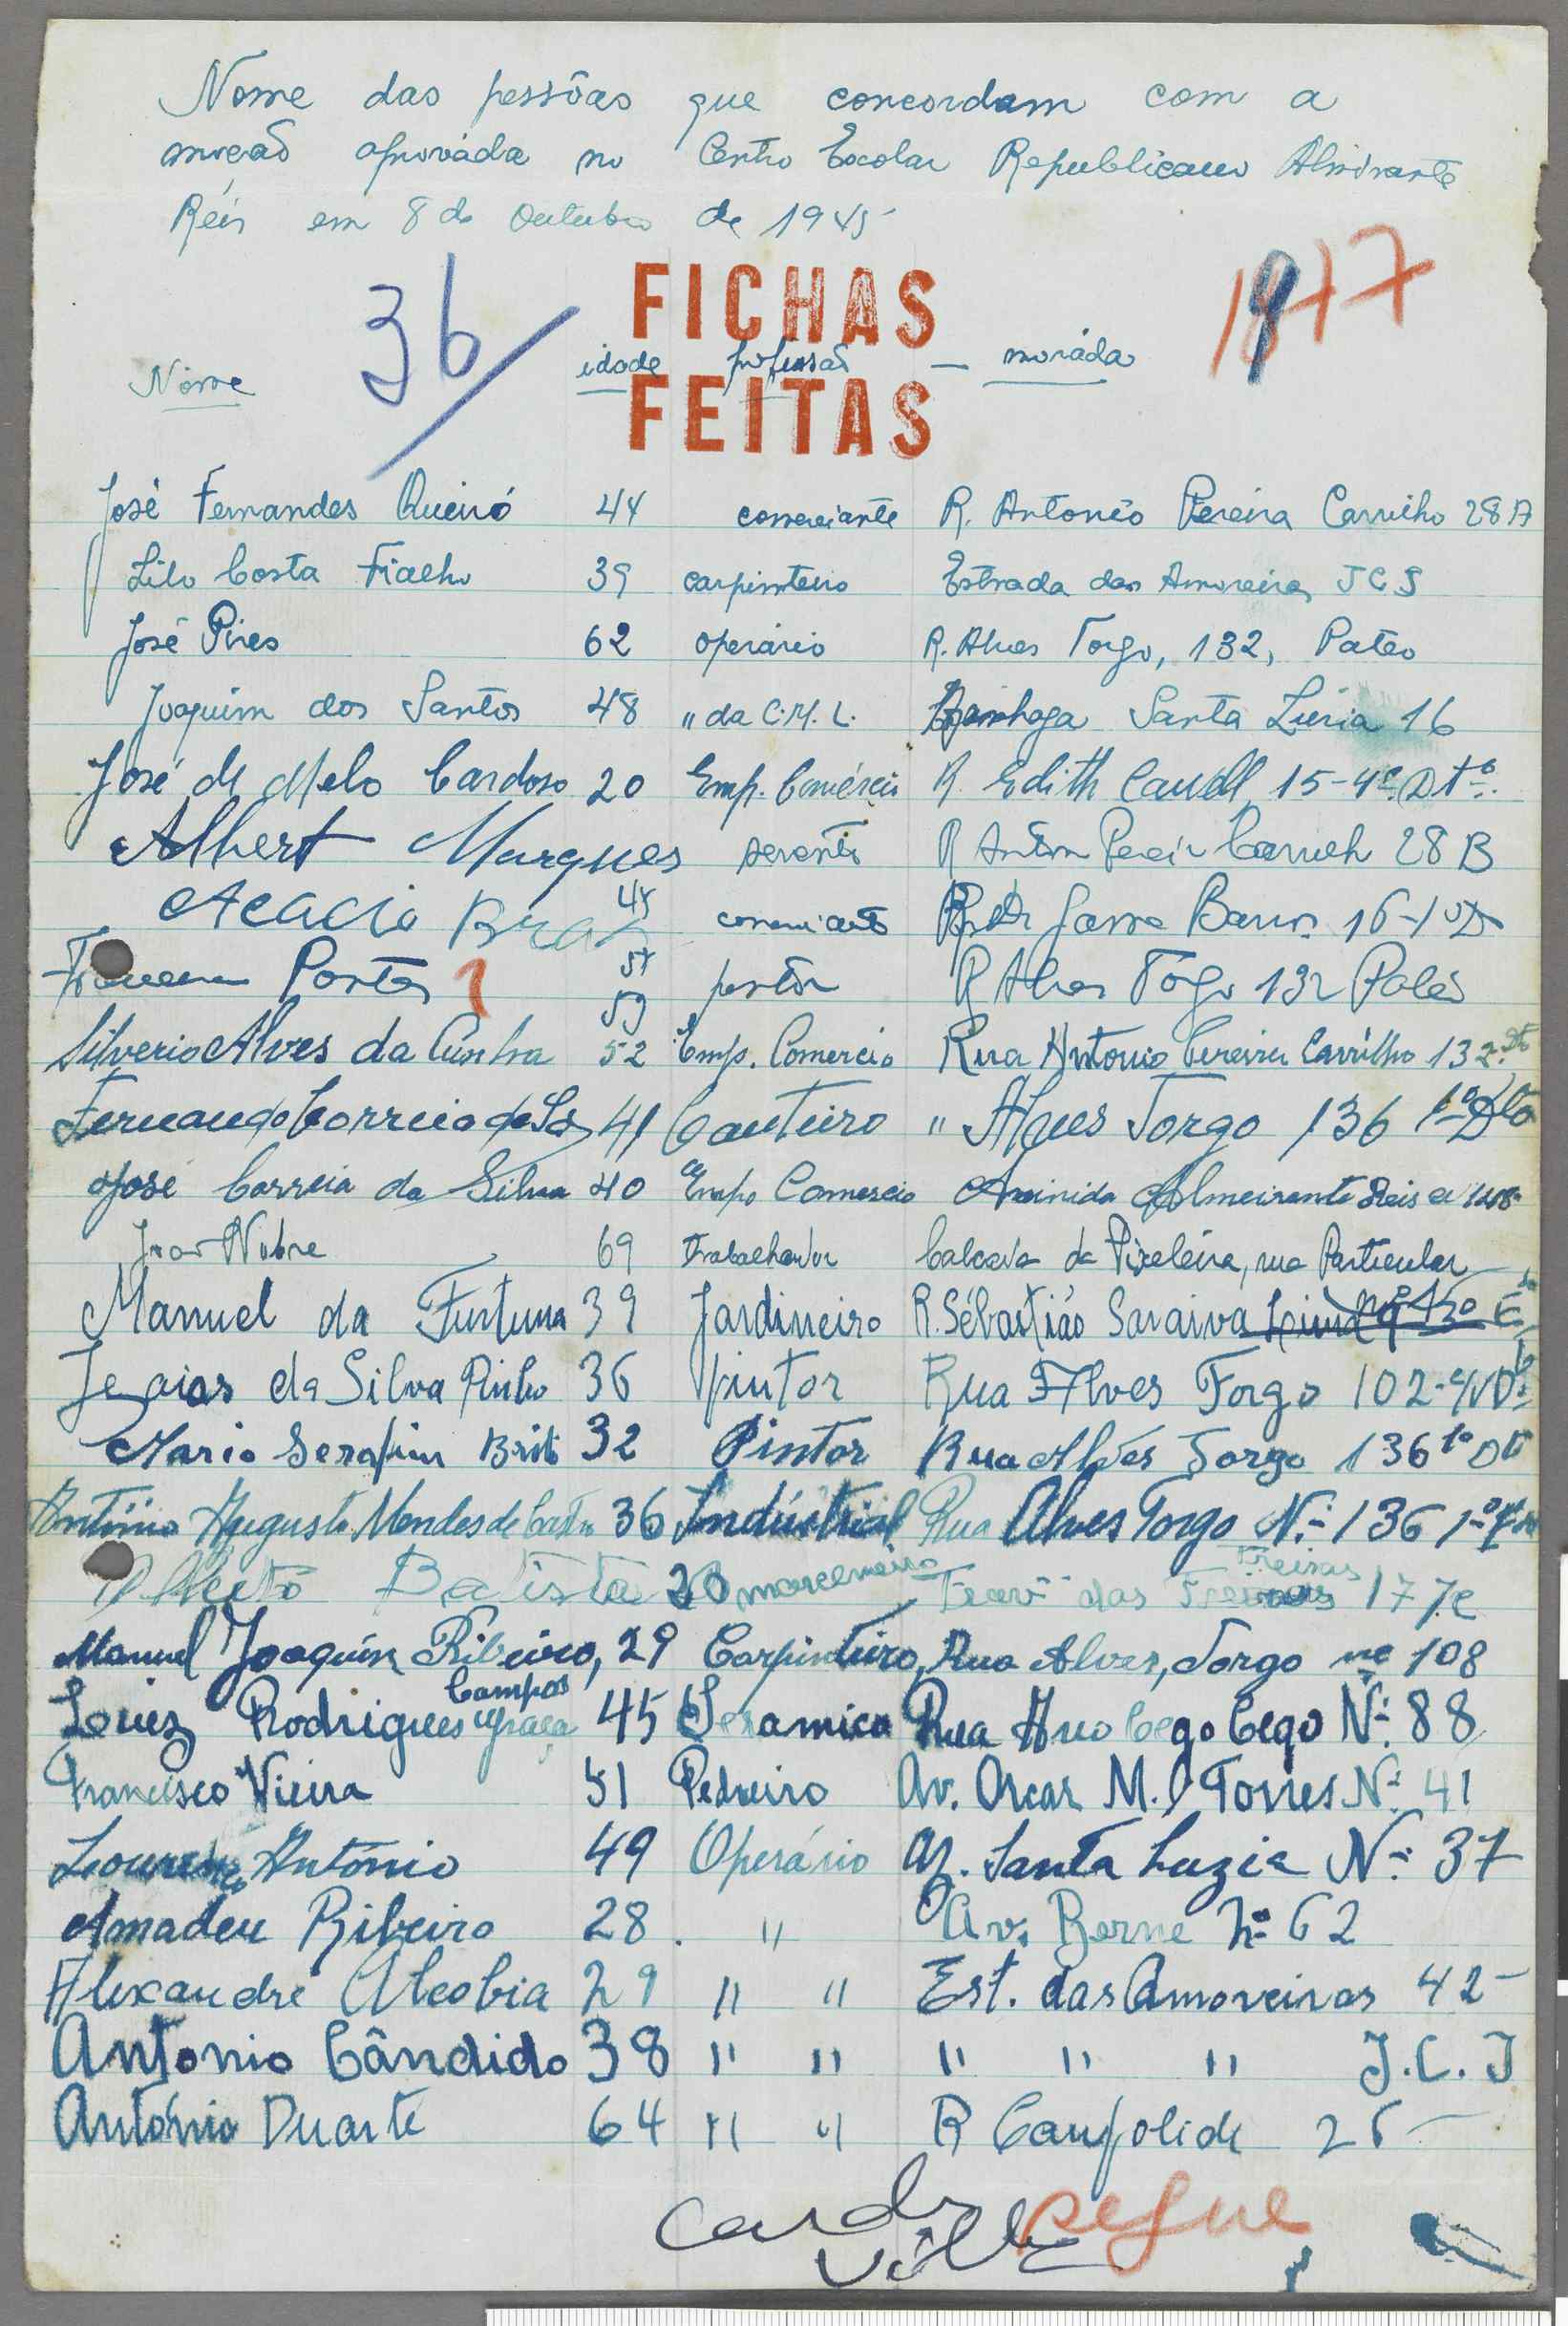 Nome das pessôas que concordam com a
moção aprováda no Centro Escolar Republicano Almirante
Réis em 8 de Outubro de 1945
36
FICHAS
1977
Nome idade profissão — moráda
FEITAS
José Fernandes Queiró 44 comerciante R. Antonio Pereira Carrilho 28 A
Lilo Costa Fialho 39 carpinteiro Estrada das Amoreiras J C J
José Pires 62 operário R. Alves Torgo, 132, Pateo
Joaquim dos Santos 48 " da C. M. L. Santa Luzia 16
José de Melo Cardoso 20 Emp. Comércio R. Edith Cavell 15-4º Dtº.
Albert Marques servente R Antom Pereir Carrilh 28 B
Acacio Braz 44 comerciante Barros 16-1º D
Portes 1 54 R Alves Torgo 132 Pateo
59
Silverio Alves da Cunha 52 Emp. Comercio Rua Antonio Pereira Carrilho 13 2º Dto
Fernando Correia de Sá 41 Canteiro " Alves Torgo 136 1º Dto
José Correia da Silva 40 Empo Comercio Avinida Almeirante Reis
Joao Nobre 69 trabalhador Calcada da Pixeleira, rua Particular
Manuel da Furtuna 39 Jardineiro R. Sébastião Saraiva Lima
Jesaias da Silva Pinho 36 pintor Rua Alves Torgo 102-4º Dto
Mario Serafim Brito 32 Pintor Rua Alves Torgo 136 1º Dto
António Augusto Mendes de Castro 36 Indústrial Rua Alves Torgo Nº 136 1º
Freiras
Alberto Batista 20 marceneiro Trav das Freiras 17 7c
Manuel Joaquim Ribeiro, 29 Carpinteiro, Rua Alves, Torgo nº 108
Campos
Louiz Rodrigues Graça 45 Seramica Rua Arco Cego Cego Nº 88
Francisco Vieira 51 Pedreiro Av. Oscar M. Torres Nº 41
Lourenço António 49 Operário Az. Santa Luzia Nº 37
Amadeu Ribeiro 28. " Av. Berne nº 62
Alexandre Alcobia 29 " " Est. das Amoreiras 42
Antonio Cândido 38 " " " " " J. C. J
António Duarte 64 " " R Campolide 26
segue